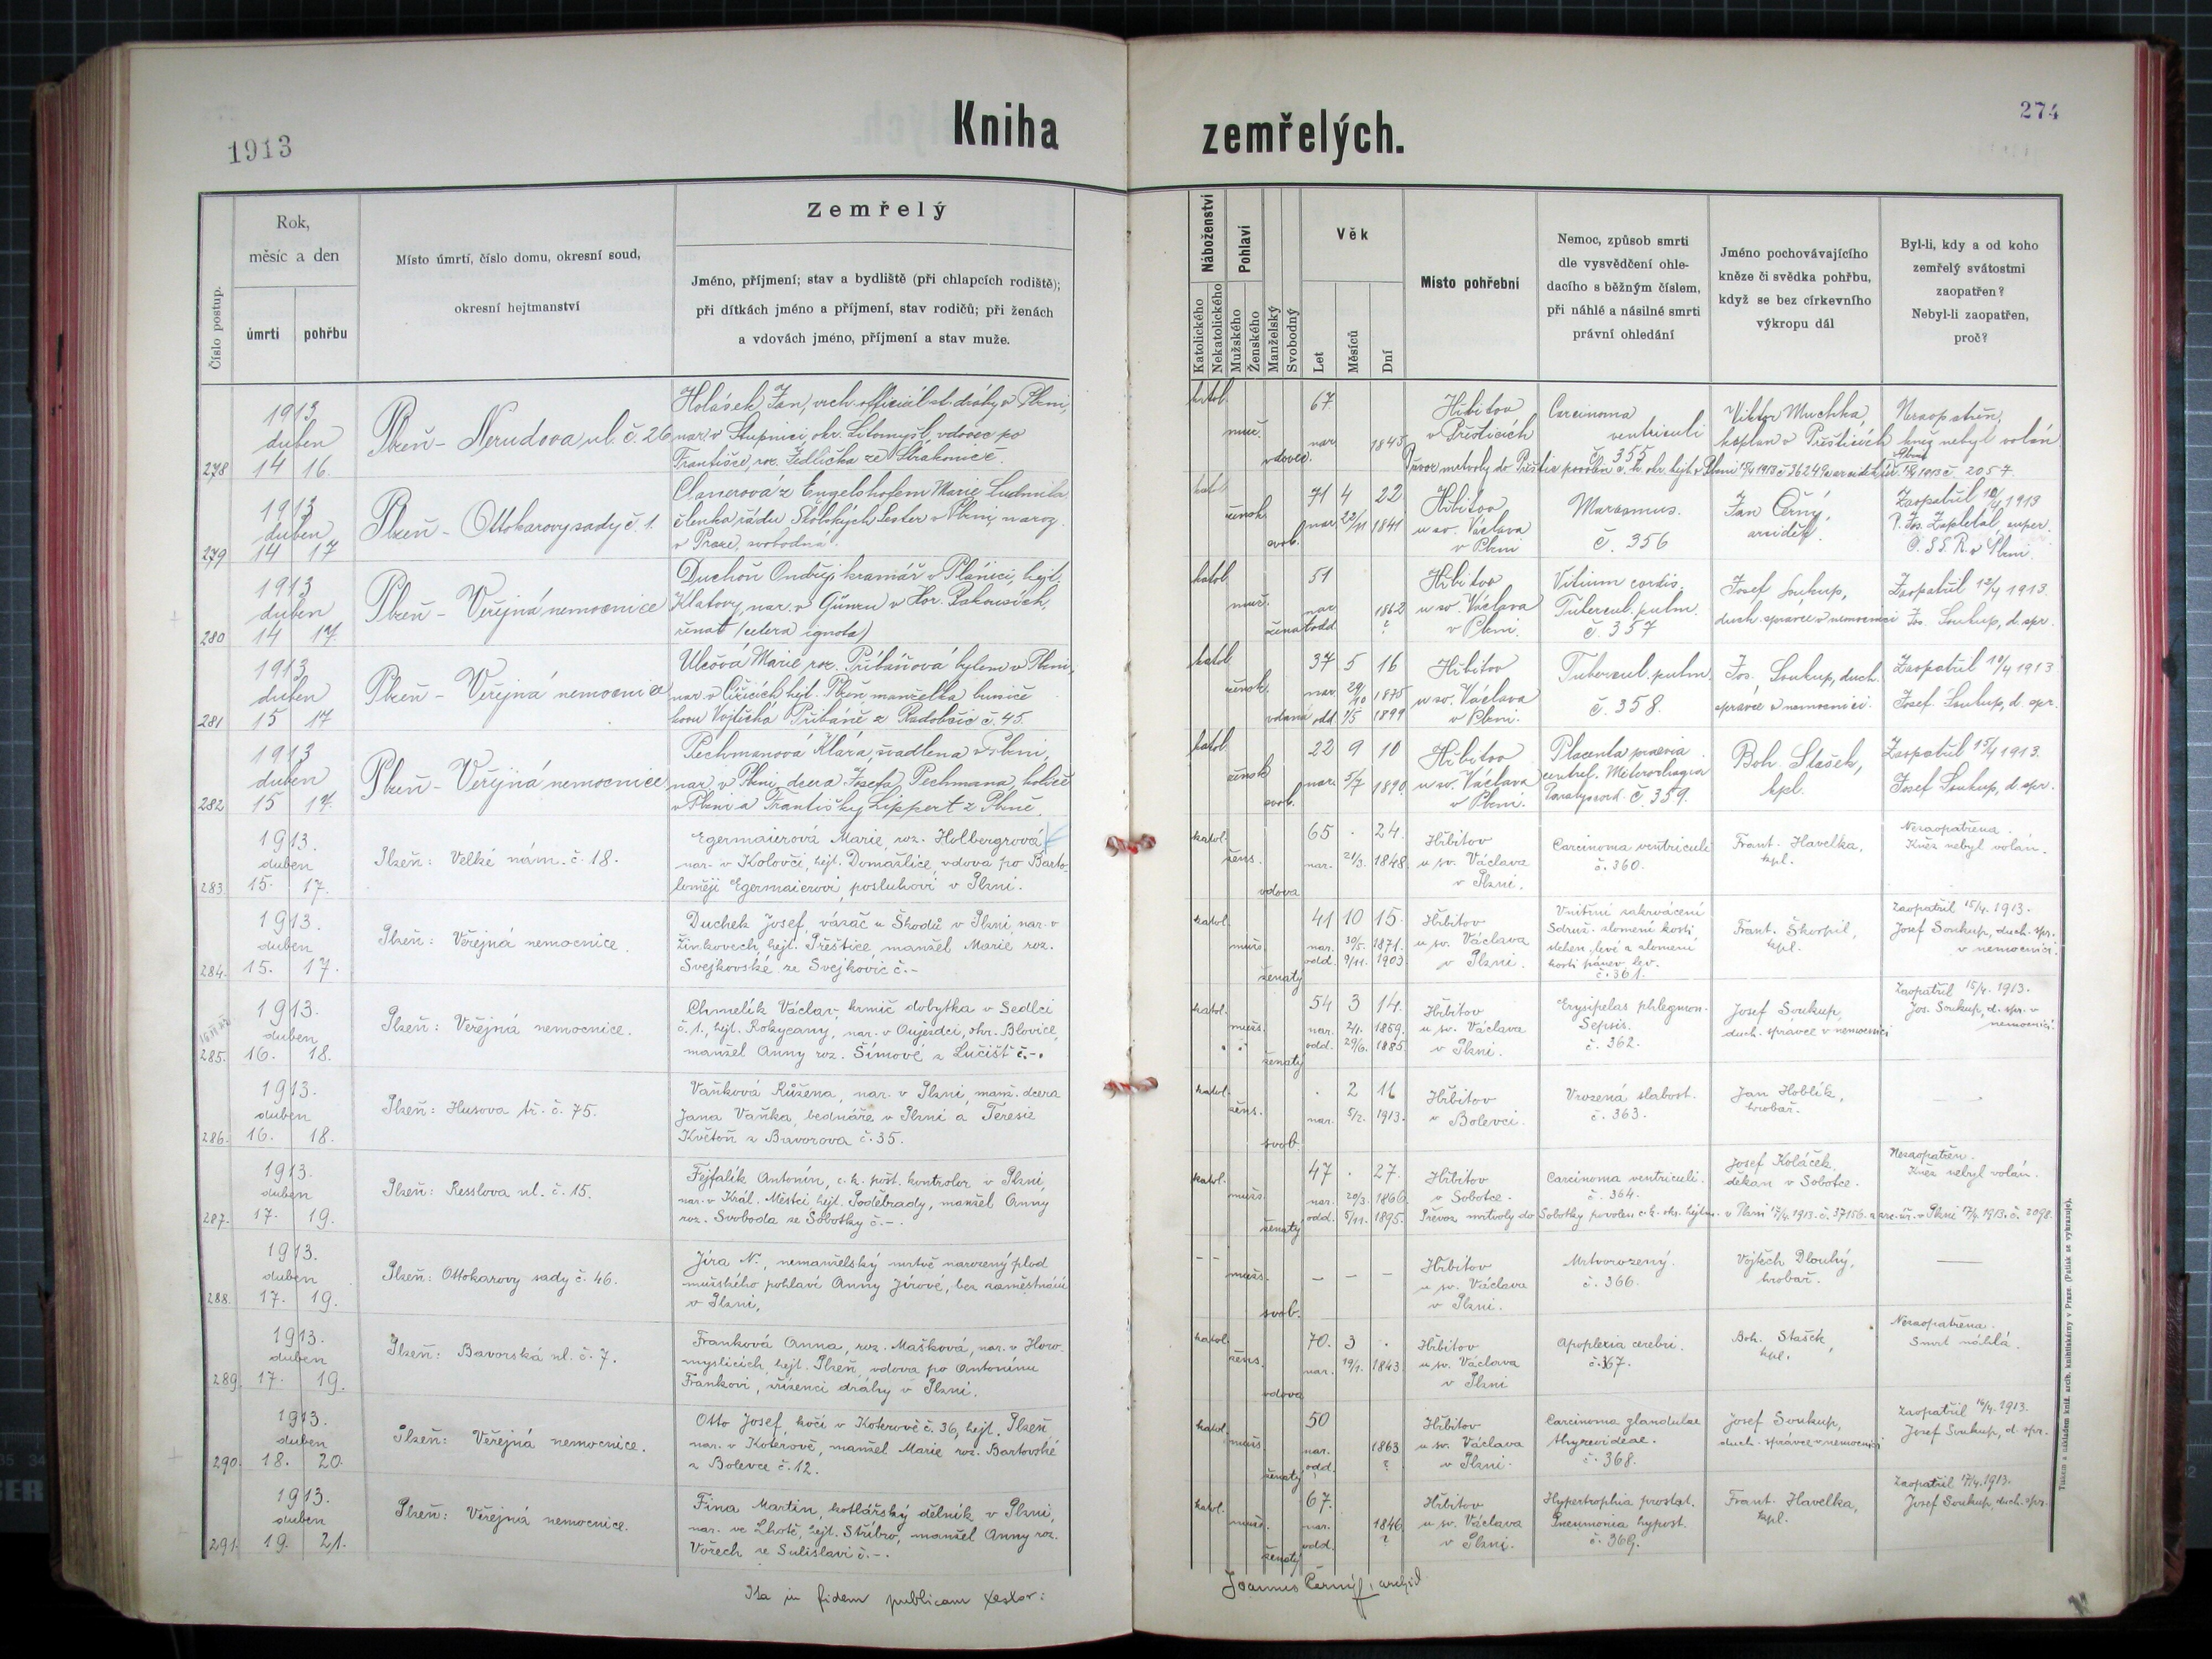 1913
Kniha
zemřelých.
274
Číslo postup.
Rok,
měsíc a den
úmrtí
pohřbu
Místo úmrtí, číslo domu, okresní soud,
okresní hejtmanství
Zemřelý
Jméno, příjmení; stav a bydliště (při chlapcích rodiště);
při dítkách jméno a příjmení, stav rodičů; při ženách
a vdovách jméno, příjmení a stav muže.
Náboženství
Katolického
Nekatolického
Pohlaví
Mužského
Ženského
Manželský
Svobodný
Věk
Let
Měsíců
Dní
Místo pohřební
Nemoc, způsob smrti
dle vysvědčení ohle-
dacího s běžným číslem,
při náhlé a násilné smrti
právní ohledání
Jméno pochovávajícího
kněze či svědka pohřbu,
když se bez církevního
výkropu dál
Byl-li, kdy a od koho
zemřelý svátostmi
zaopatřen?
Nebyl-li zaopatřen,
proč?
278
1913
duben
14 16.
Plzeň - Nerudova ul. č. 26
Holásek Jan, vrch. officiál st. dráhy v Plzni,
nar. v Stupnici, okr. Litomyšl, vdovec po
Františce, roz. Jedlička ze Strakonic č.
katol.
muž.
vdovec.
67
nar. 1845
Hřbitov
v Přešticích
Carcinoma
ventriculi
č. 355
Viktor Muchka,
kaplan v Přešticích
Nezaopatřen,
kněz nebyl volán
279
1913
duben
14 17
Plzeň - Ottokarovy sady č. 1.
Clanerová z Engelshofenu Marie Ludmila
členka řádu Školských Sester v Plzni, naroz.
v Praze, svobodná.
katol.
žensk.
svob.
71 4 22
nar. 22/11 1841
Hřbitov
u sv. Václava
v Plzni
Marasmus.
č. 356
Jan Černý,
arciděk.
Zaopatřil 10/4 1913
P. Jos. Zapletal, super.
C. SS. R. v Plzni.
280
1913
duben
14 17.
Plzeň - Veřejná nemocnice
Duchoň Ondřej, kramář v Plánici, hejt.
Klatovy, nar. v Günzu v Hor. Rakousích,
ženat (cetera ignota)
katol.
muž.
ženat
51
nar. 1862
odd. ?
Hřbitov
u sv. Václava
v Plzni.
Vitium cordis.
Tubercul. pulm.
č. 357
Josef Soukup,
duch. správce v nemocnici
Zaopatřil 12/4 1913.
Jos. Soukup, d. spr.
281
1913
duben
15 17
Plzeň - Veřejná nemocnice
Ulčová Marie roz. Přibáňová bytem v Plzni,
nar. v Čižicích hejt. Plzeň, manželka
Vojtěcha Přibáně z Radobčic č. 45.
katol.
žensk.
vdaná
37 5 16
nar. 29/10 1875
odd. 1/5 1899
Hřbitov
u sv. Václava
v Plzni.
Tubercul. pulm.
č. 358.
Jos. Soukup, duch.
správce v nemocnici.
Zaopatřil 10/4 1913
Josef Soukup, d. spr.
282
1913
duben
15 17.
Plzeň - Veřejná nemocnice
Pechmanová Klára, švadlena v Plzni,
nar. v Plzni, dcera Josefa Pechmana, holiče
v Plzni a Františky Lippert z Plzně.
katol.
žensk.
svob.
22 9 10
nar. 5/7 1890
Hřbitov
u sv. Václava
v Plzni.
Placenta praevia
central. Metrorrhagia
Paralys. cord. č. 359.
Boh. Stašek,
kpl.
Zaopatřil 15/4 1913.
Josef Soukup, d. spr.
283.
1913.
duben
15. 17.
Plzeň: Velké nám. č. 18.
Egermaierová Marie, roz. Holbergrová
nar. v Kolovči, hejt. Domažlice, vdova po Barto-
loměji Egermaierovi, posluhovi v Plzni.
katol.
žens.
vdova
65 . 24.
nar. 21/3. 1848.
Hřbitov
u sv. Václava
v Plzni.
Carcinoma ventriculi
č. 360.
Frant. Havelka,
kpl.
Nezaopatřena.
Kněz nebyl volán.
284.
1913.
duben
15. 17.
Plzeň: Veřejná nemocnice.
Duchek Josef, vázač u Škodů v Plzni nar. v
Žinkovech, hejt. Přeštice, manžel Marie roz.
Svejkovské ze Svejkovic č.-
katol.
mužs.
ženatý
41 10 15.
nar. 30/5. 1871.
odd. 9/11. 1903.
Hřbitov
u sv. Václava
v Plzni.
Vnitřní zakrvácení
Sdruž. zlomení kosti
stehen. levé a zlomení
kosti pánev. lev.
č. 361.
Frant. Škorpil,
kpl.
Zaopatřil 15/4. 1913.
Josef Soukup, duch. spr.
v nemocnici.
285.
1913.
duben
16. 18.
Plzeň: Veřejná nemocnice.
Chmelík Václav, krmič dobytka v Sedlci
č. 1., hejt. Rokycany, nar. v Oujezdci, okr. Blovice,
manžel Anny roz. Šimové z Lučišť č.-.
katol.
mužs.
ženatý
54 3 14.
nar. 2/1. 1859.
odd. 29/6. 1885.
Hřbitov
u sv. Václava
v Plzni.
Erysipelas phlegmon.
Sepsis.
č. 362.
Josef Soukup,
duch. správce v nemocnici
Zaopatřil 15/4. 1913.
Jos. Soukup, d. spr. v
nemocnici.
286.
1913.
duben
16. 18.
Plzeň: Husova tř. č. 75.
Vaňková Růžena, nar. v Plzni, manž. dcera
Jana Vaňka, bednáře v Plzni a Terezie
Květoň z Bavorova č. 35.
katol.
žens.
svob.
. 2 11
nar. 5/2. 1913.
Hřbitov
v Bolevci.
Vrozená slabost.
č. 363.
Jan Hoblík,
hrobař.
—
287.
1913.
duben
17. 19.
Plzeň: Resslova ul. č. 15.
Fejfalík Antonín, c. k. pošt. kontrolor v Plzni,
nar. v Král. Městci, hejt. Poděbrady, manžel Anny
roz. Svoboda ze Sobotky č. -.
katol.
mužs.
ženatý
47 . 27.
nar. 20/3. 1866.
odd. 5/11. 1895.
Hřbitov
v Sobotce.
Carcinoma ventriculi.
č. 364.
Josef Koláček,
děkan v Sobotce.
Nezaopatřen.
Kněz nebyl volán.
Převoz mrtvoly do Sobotky povolen c. k. okr. hejtm. v Plzni 17/4. 1913. č. 37156. a arc. úř. v Plzni 17/4. 1913. č. 2098.
288.
1913.
duben
17. 19.
Plzeň: Ottokarovy sady č. 46.
Jíra N., nemanželský mrtvě narozený plod
mužského pohlaví Anny Jírové, bez zaměstnání
v Plzni.
- -
mužs.
svob.
— — —
Hřbitov
u sv. Václava
v Plzni.
Mrtvorozený.
č. 366.
Vojtěch Dlouhý,
hrobař.
—
289.
1913.
duben
17. 19.
Plzeň: Bavorská ul. č. 7.
Franková Anna, roz. Mašková, nar. v Horo-
myslicích, hejt. Plzeň, vdova po Antonínu
Frankovi, zřízenci dráhy v Plzni.
katol.
žens.
vdova
70. 3 .
nar. 19/1. 1843.
Hřbitov
u sv. Václava
v Plzni
Apoplexia cerebri.
č. 367.
Boh. Stašek,
kpl.
Nezaopatřena.
Smrt náhlá.
290.
1913.
duben
18. 20.
Plzeň: Veřejná nemocnice.
Otto Josef, kočí v Koterově č. 36, hejt. Plzeň
nar. v Koterově, manžel Marie roz. Bartovské
z Bolevce č. 12.
katol.
mužs.
ženatý
50
nar. 1863
odd. ?
Hřbitov
u sv. Václava
v Plzni.
Carcinoma glandulae
thyreoideae.
č. 368.
Josef Soukup,
duch. správce v nemocnici
Zaopatřil 16/4. 1913.
Josef Soukup, d. spr.
291.
1913.
duben
19. 21.
Plzeň: Veřejná nemocnice.
Fina Martin, kotlářský dělník v Plzni,
nar. ve Lhotě, hejt. Stříbro, manžel Anny roz.
Vořech ze Sulislavi č. -.
katol.
mužs.
ženatý
67.
nar. 1846
odd. ?
Hřbitov
u sv. Václava
v Plzni.
Hypertrophia prostat.
Pneumonia hypost.
č. 369.
Frant. Havelka,
kpl.
Zaopatřil 17/4. 1913.
Josef Soukup, duch. spr.
Ita in fidem publicam testor:
Joannes Černý, archid.
Tiskem a nákladem kníž. arcib. knihtiskárny v Praze. (Patisk se vyhrazuje).